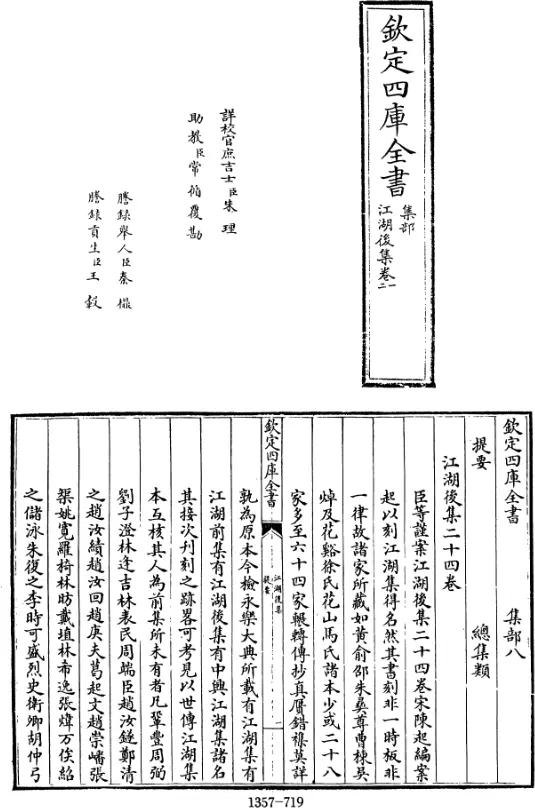 欽定四庫全書
集部
江湖後集卷一二
詳校官庶吉士臣朱理
助教臣常循覆勘
謄錄舉人臣秦欐
謄錄貢生臣王榖
欽定四庫全書　集部八
提要　總集類
江湖後集二十四卷
臣等謹案江湖後集二十四卷宋陳起編案
起以刻江湖集得名然其書刻非一時板非
一律故諸家所藏如黄俞邰朱彛尊曹棟吴
焯及花谿徐氏花山馬氏諸本少或二十八
家多至六十四家輾轉傳抄真贋錯襍莫詳
孰為原本今檢永樂大典所載有江湖集有
欽定四庫全書
江湖後集
提要
一
江湖前集有江湖後集有中興江湖集諸名
其接次刋刻之跡畧可考見以世傳江湖集
本互核其人為前集所未有者凡鞏豐周弼
劉子澄林逢吉林表民周端臣趙汝鐩鄭清
之趙汝績趙汝回趙庚夫葛起文趙崇嶓張
榘姚寛羅椅林昉戴埴林希逸張煒万俟紹
之儲泳朱復之李時可盛烈史衛卿胡仲弓
1357-719